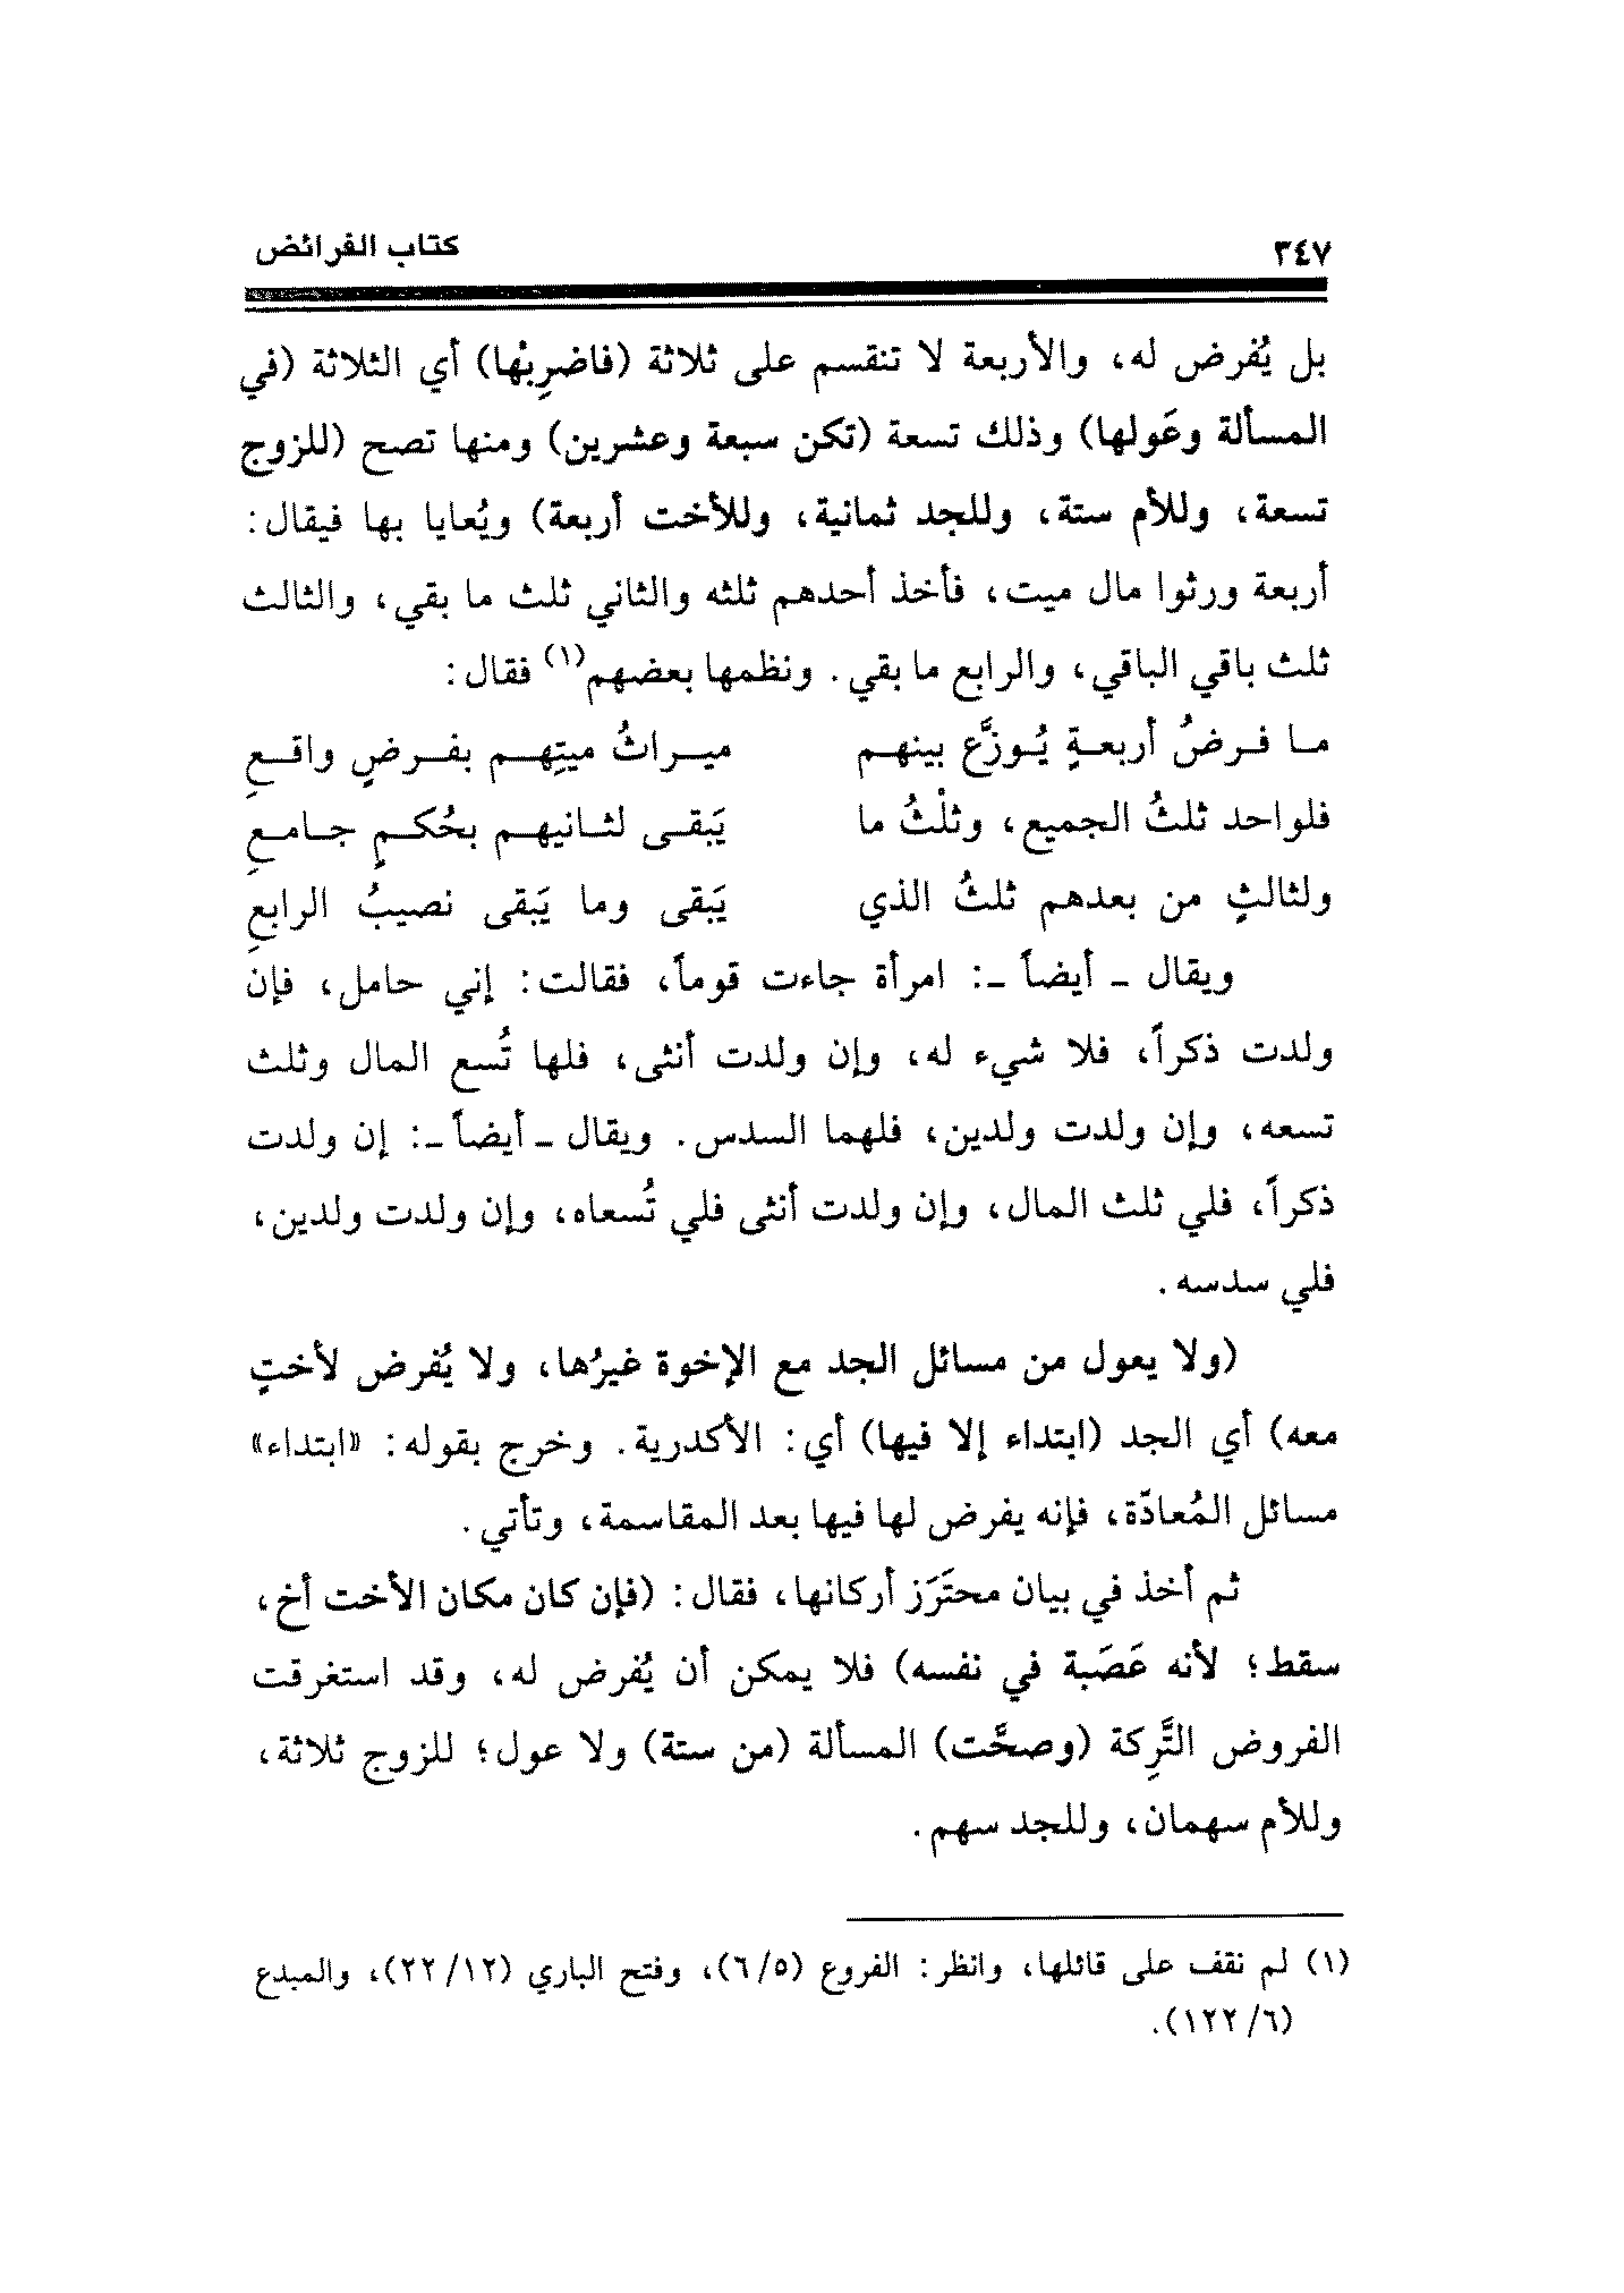 ٣٤٧ كتاب الفرائض
بل يُفرض له، والأربعة لا تنقسم على ثلاثة (فاضرِبْها) أي الثلاثة (في
المسألة وعَولها) وذلك تسعة (تكن سبعة وعشرين) ومنها تصح (للزوج
تسعة، وللأم ستة، وللجد ثمانية، وللأخت أربعة) ويُعايا بها فيقال:
أربعة ورثوا مال ميت، فأخذ أحدهم ثلثه والثاني ثلث ما بقي، والثالث
ثلث باقي الباقي، والرابع ما بقي. ونظمها بعضهم(١) فقال:
مـا فـرضُ أربعـةٍ يُـوزَّع بينهـم ميـراثُ ميتِهـم بفـرضٍ واقـعِ
فلواحد ثلثُ الجميع، وثلْثُ ما يَبقـى لثـانيهـم بحُكـمٍ جـامـعِ
ولثالثٍ من بعدهم ثلثُ الذي يَبقى وما يَبقى نصيبُ الرابعِ
ويقال ـ أيضاً ـ: امرأة جاءت قوماً، فقالت: إني حامل، فإن
ولدت ذكراً، فلا شيء له، وإن ولدت أنثى، فلها تُسع المال وثلث
تسعه، وإن ولدت ولدين، فلهما السدس. ويقال ـ أيضاً ـ: إن ولدت
ذكراً، فلي ثلث المال، وإن ولدت أنثى فلي تُسعاه، وإن ولدت ولدين،
فلي سدسه.
(ولا يعول من مسائل الجد مع الإخوة غيرُها، ولا يُفرض لأختٍ
معه) أي الجد (ابتداء إلا فيها) أي: الأكدرية. وخرج بقوله: «ابتداء»
مسائل المُعادّة، فإنه يفرض لها فيها بعد المقاسمة، وتأتي.
ثم أخذ في بيان محتَرَز أركانها، فقال: (فإن كان مكان الأخت أخ،
سقط؛ لأنه عَصَبة في نفسه) فلا يمكن أن يُفرض له، وقد استغرقت
الفروض التَّرِكة (وصحَّت) المسألة (من ستة) ولا عول؛ للزوج ثلاثة،
وللأم سهمان، وللجد سهم.
(١) لم نقف على قائلها، وانظر: الفروع (٦/٥)، وفتح الباري (٢٢/١٢)، والمبدع
(١٢٢/٦).